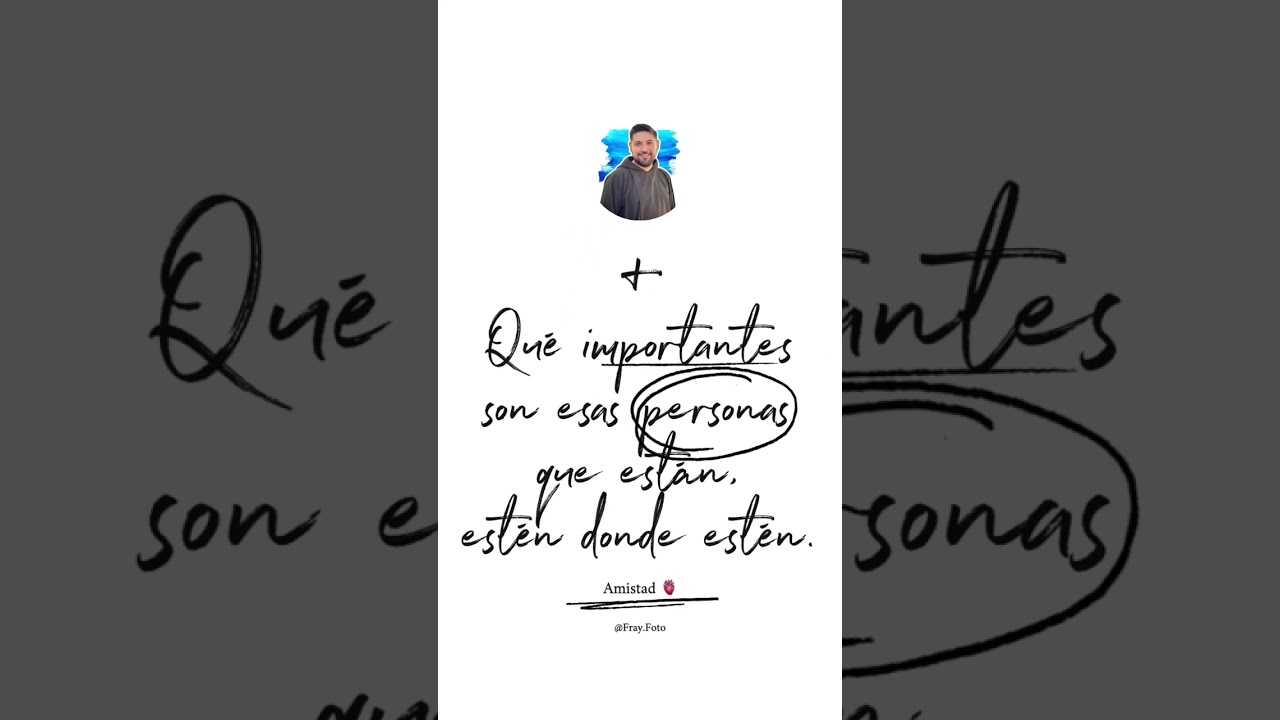 +
Qué importantes
son esas personas
que están,
estén donde estén.
Amistad 🫀
@Fray.Foto